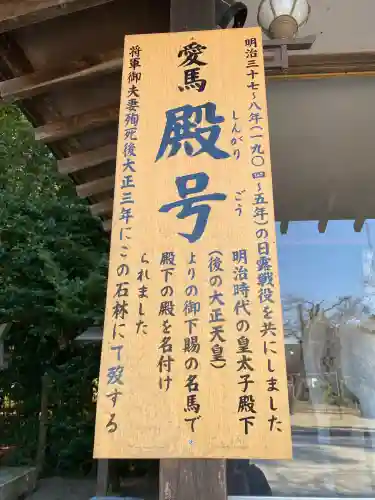 明治三十七~八年(一九〇四~五年)の日露戦役を共にしました
愛馬
殿号
しんがり
ごう
明治時代の皇太子殿下
(後の大正天皇)
よりの御下賜の名馬で
殿下の殿を名付け
られました
将軍御夫妻殉死後大正三年にこの石林にて歿する